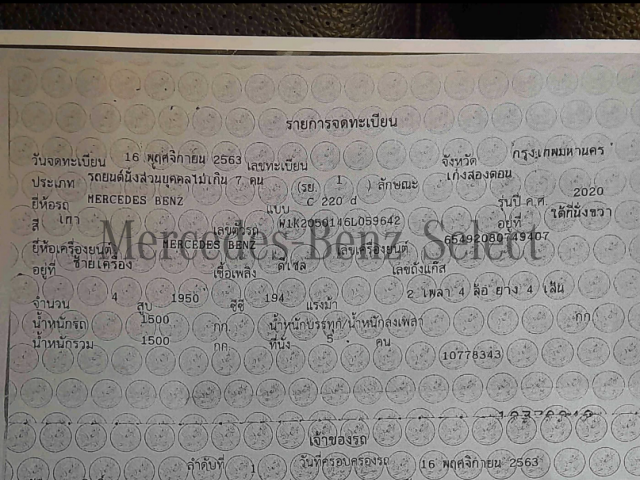 รายการจดทะเบียน
วันจดทะเบียน 16 พฤศจิกายน 2563 เลขทะเบียน จังหวัด กรุงเทพมหานคร
ประเภท รถยนต์นั่งส่วนบุคคลไม่เกิน 7 คน (รย 1 ) ลักษณะ เก๋งสองตอน
ยี่ห้อรถ MERCEDES BENZ แบบ C 220 d รุ่นปี ค.ศ. 2020
สี เทา เลขตัวรถ W1K2050146L059642 อยู่ที่ ใต้ที่นั่งขวา
Mercedes-Benz Select
ยี่ห้อเครื่องยนต์ MERCEDES BENZ เลขเครื่องยนต์ 65492080749407
อยู่ที่ ซ้ายเครื่อง เชื้อเพลิง ดีเซล เลขถังแก๊ส
จำนวน 4 สูบ 1950 ซีซี 194 แรงม้า 2 เพลา 4 ล้อ ยาง 4 เส้น
น้ำหนักรถ 1500 กก. น้ำหนักบรรทุก/น้ำหนักลงเพลา กก.
น้ำหนักรวม 1500 กก. ที่นั่ง 5 คน
10778343
เจ้าของรถ
ลำดับที่ 1 วันที่ครอบครองรถ 16 พฤศจิกายน 2563